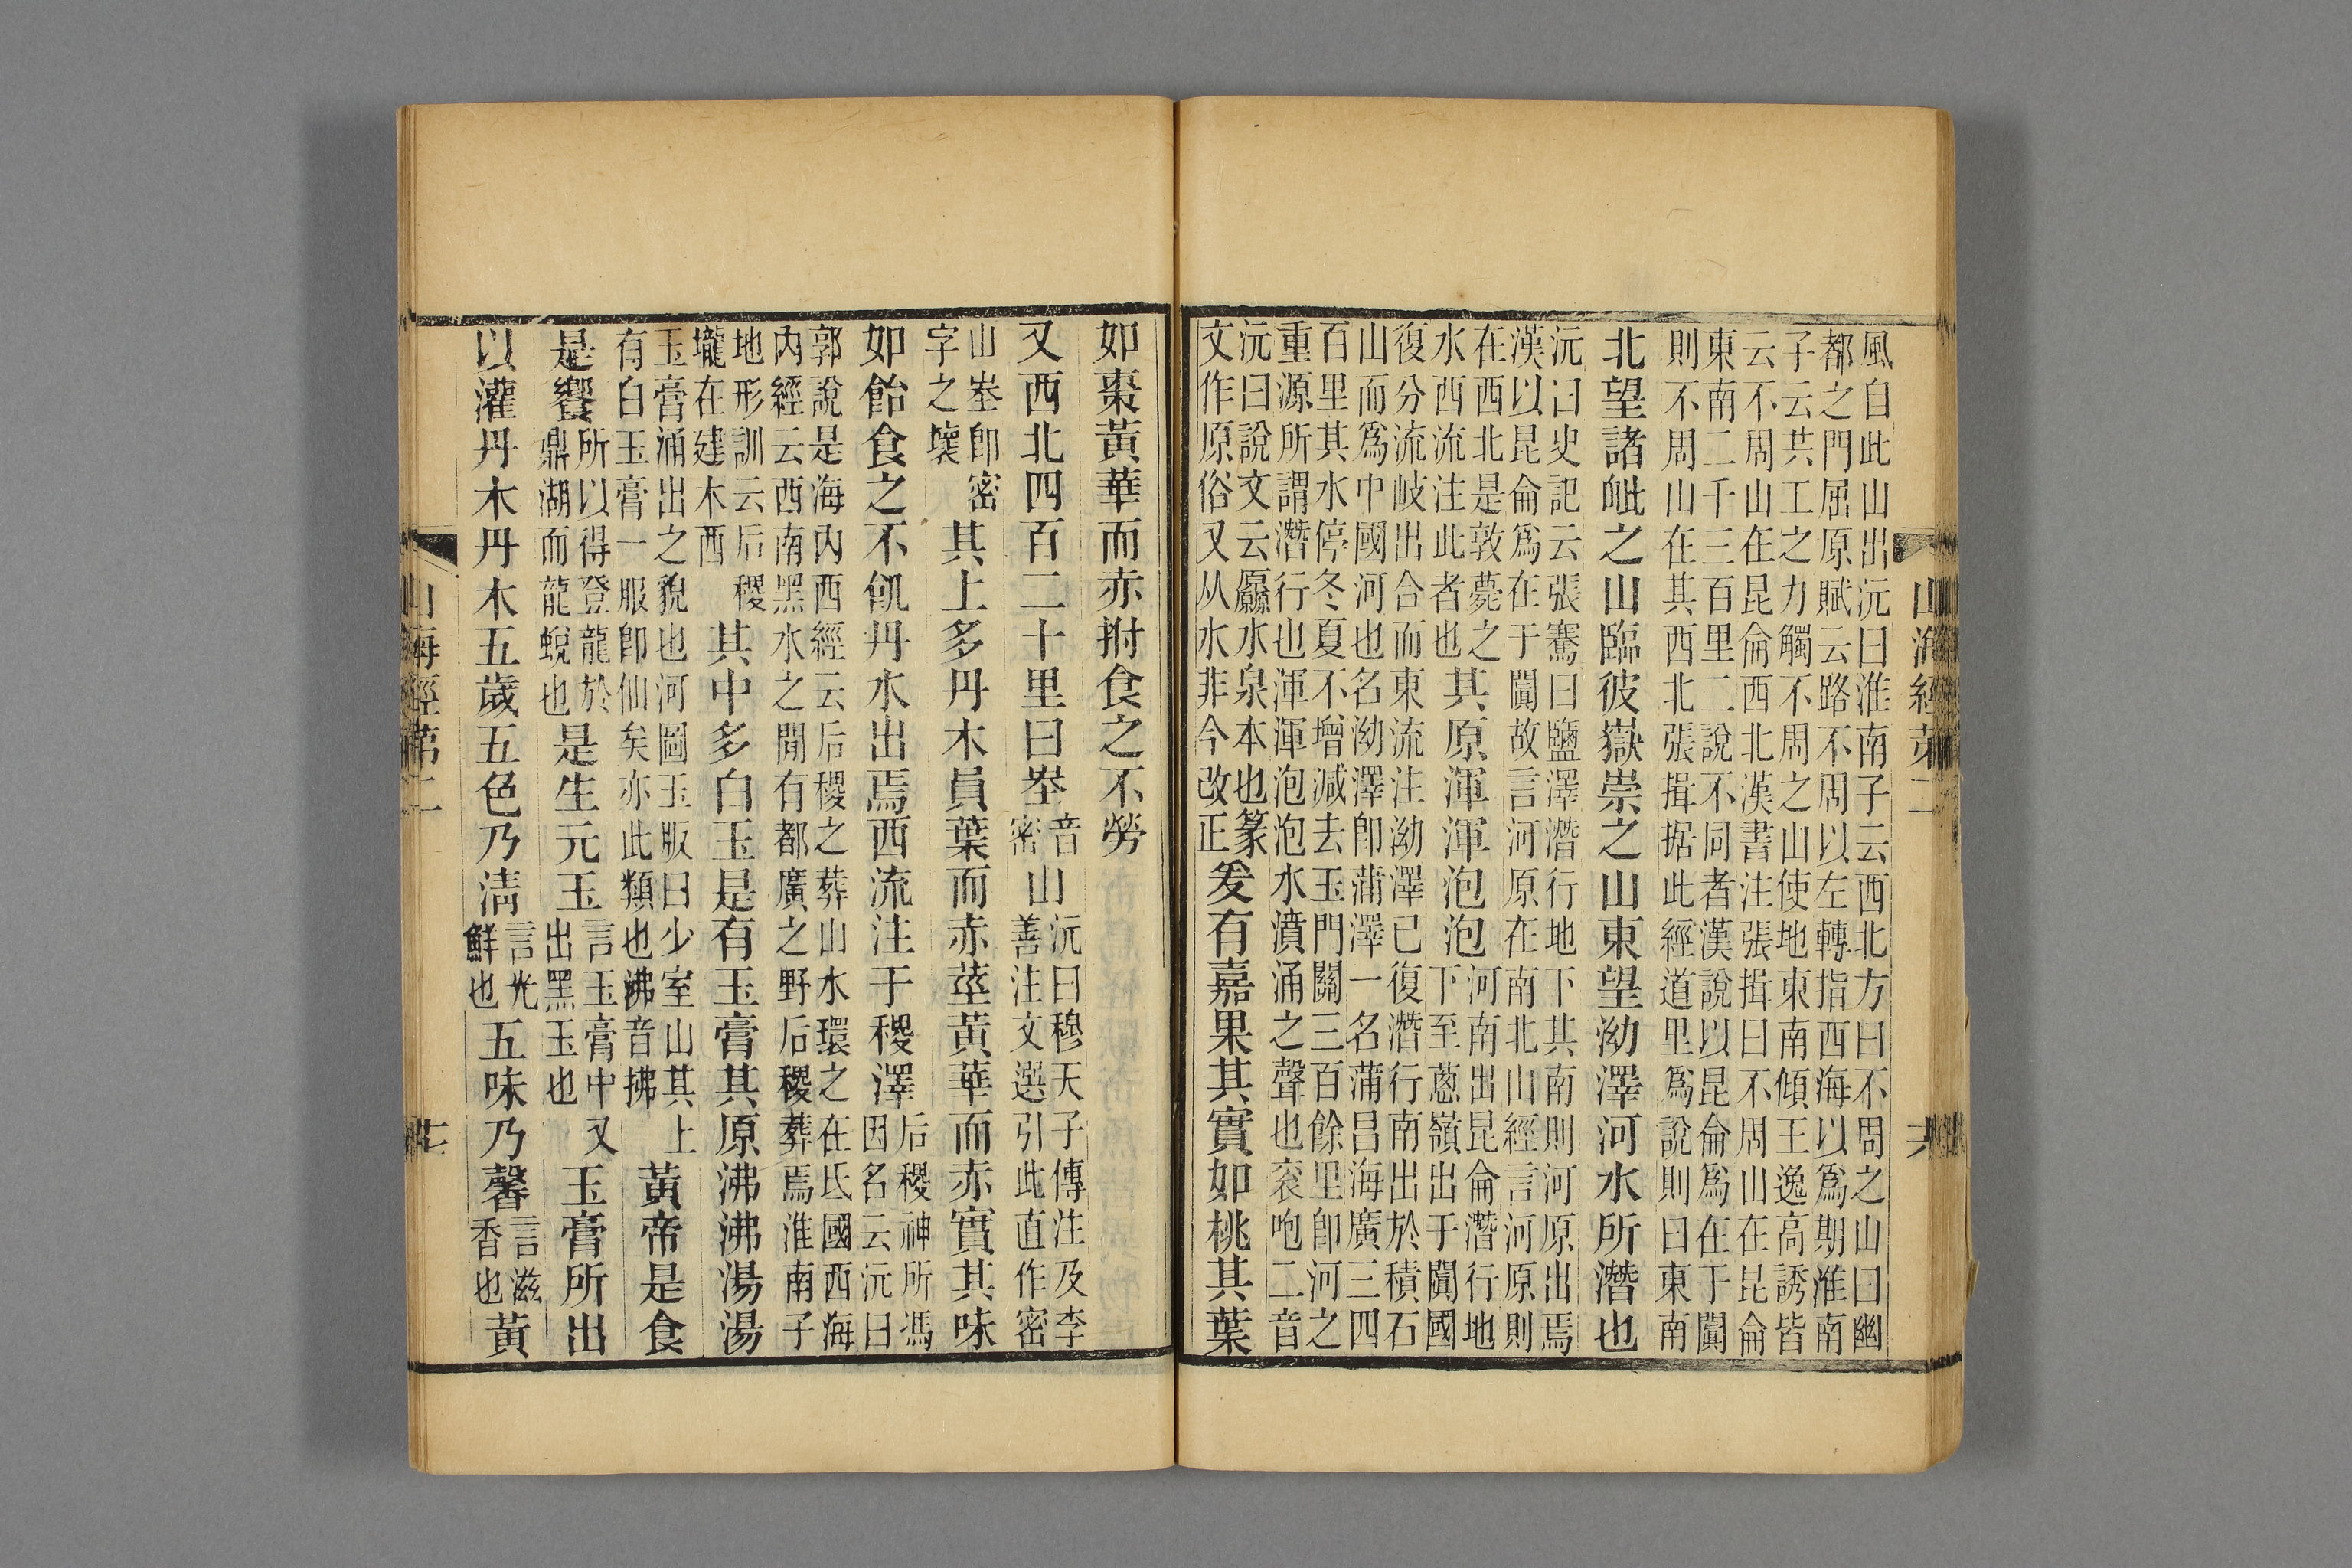 風自此山出沅曰淮南子云西北方曰不周之山曰幽
都之門屈原賦云路不周以左轉指西海以爲期淮南
子云共工之力觸不周之山使地東南傾王逸高誘皆
云不周山在昆侖西北漢書注張揖曰不周山在昆侖
東南二千三百里二說不同者漢說以昆侖爲在于闐
則不周山在其西北張揖据此經道里爲說則曰東南
北望諸𣬈之山臨彼嶽崇之山東望泑澤河水所濳也
沅曰史記云張騫曰鹽澤濳行地下其南則河原出焉
漢以昆侖爲在于闐故言河原在南北山經言河原則
在西北是敦薨之
水西流注此者也
其原渾渾泡泡
河南出昆侖濳行地
下至蔥嶺出于闐國
復分流岐出合而東流注泑澤已復濳行南出於積石
山而爲中國河也名泑澤卽蒲澤一名蒲昌海廣三四
百里其水停冬夏不增減去玉門關三百餘里卽河之
重源所謂濳行也渾渾泡泡水濆涌之聲也衮咆二音
沅曰說文云厵水泉本也篆
文作原俗又从水非今改正
爰有嘉果其實如桃其葉
山海經第二
如棗黃華而赤拊食之不勞
又西北四百二十里曰峚
音密
山
沅曰穆天子傳注及李
善注文選引此直作密
山峚卽密
字之壞
其上多丹木員葉而赤莖黃華而赤實其味
如飴食之不飢丹水出焉西流注于稷澤
后稷神所馮
因名云沅曰
郭說是海內西經云后稷之葬山水環之在氐國西海
內經云西南黑水之閒有都廣之野后稷葬焉淮南子
地形訓云后稷
壠在建木西
其中多白玉是有玉膏其原沸沸湯湯
玉膏涌出之貌也河圖玉版曰少室山其上
有白玉膏一服卽仙矣亦此類也沸音拂
黃帝是食
是饗
所以得登龍於
鼎湖而龍蛻也
是生元玉
言玉膏中又
出黑玉也
玉膏所出
以灌丹木丹木五歲五色乃淸
言光
鮮也
五味乃馨
言滋
香也
黃
山海經第二